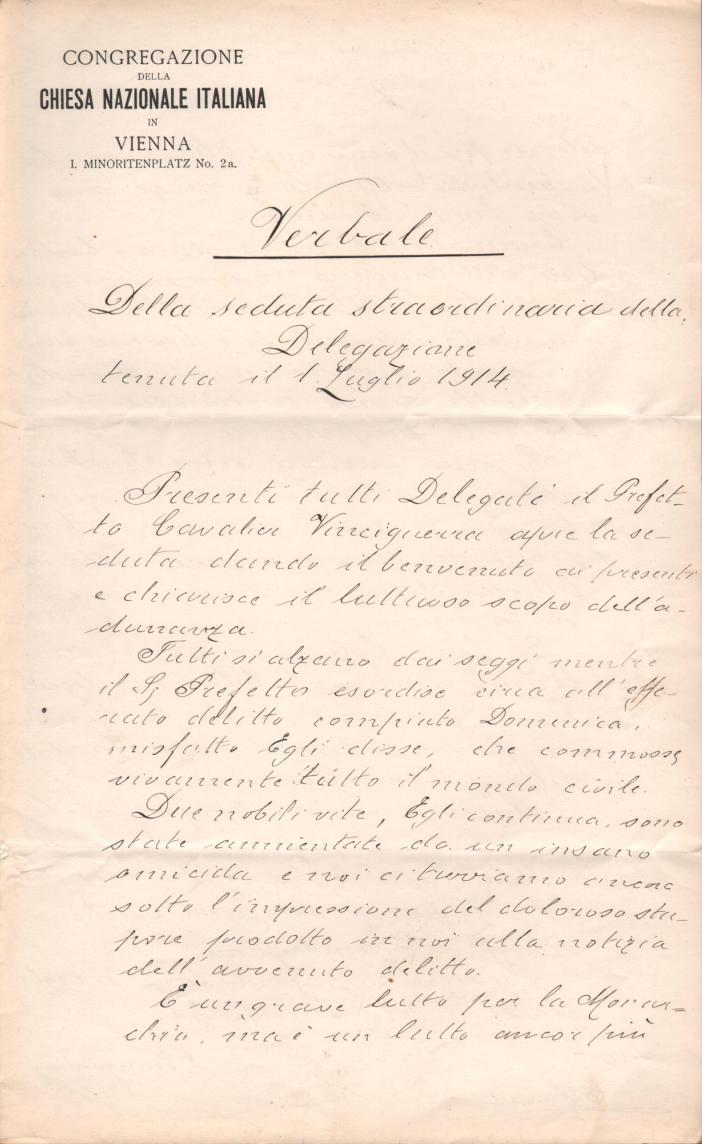 CONGREGAZIONE
DELLA
CHIESA NAZIONALE ITALIANA
IN
VIENNA
I. MINORITENPLATZ No. 2a.
Verbale
Della seduta straordinaria della
Delegazione
tenuta il 1. Luglio 1914.
Presenti tutti Delegati il Prefet-
to Cavalier Vinciguerra apre la se-
duta dando il benvenuto ai presenti
e chiarisce il luttuoso scopo dell'a-
dunanza.
Tutti si alzano dai seggi mentre
il Sg Prefetto esordisce circa all'effe-
rato delitto compiuto Domenica,
misfatto Egli disse, che commosse
vivamente tutto il mondo civile.
Due nobili vite, Egli continua, sono
state annientate da un insano
omicida e noi ci troviamo ancora
sotto l'impressione del doloroso stu-
pore prodotto in noi alla notizia
dell'avvenuto delitto.
È un grave lutto per la Monar-
chia, ma è un lutto ancor più